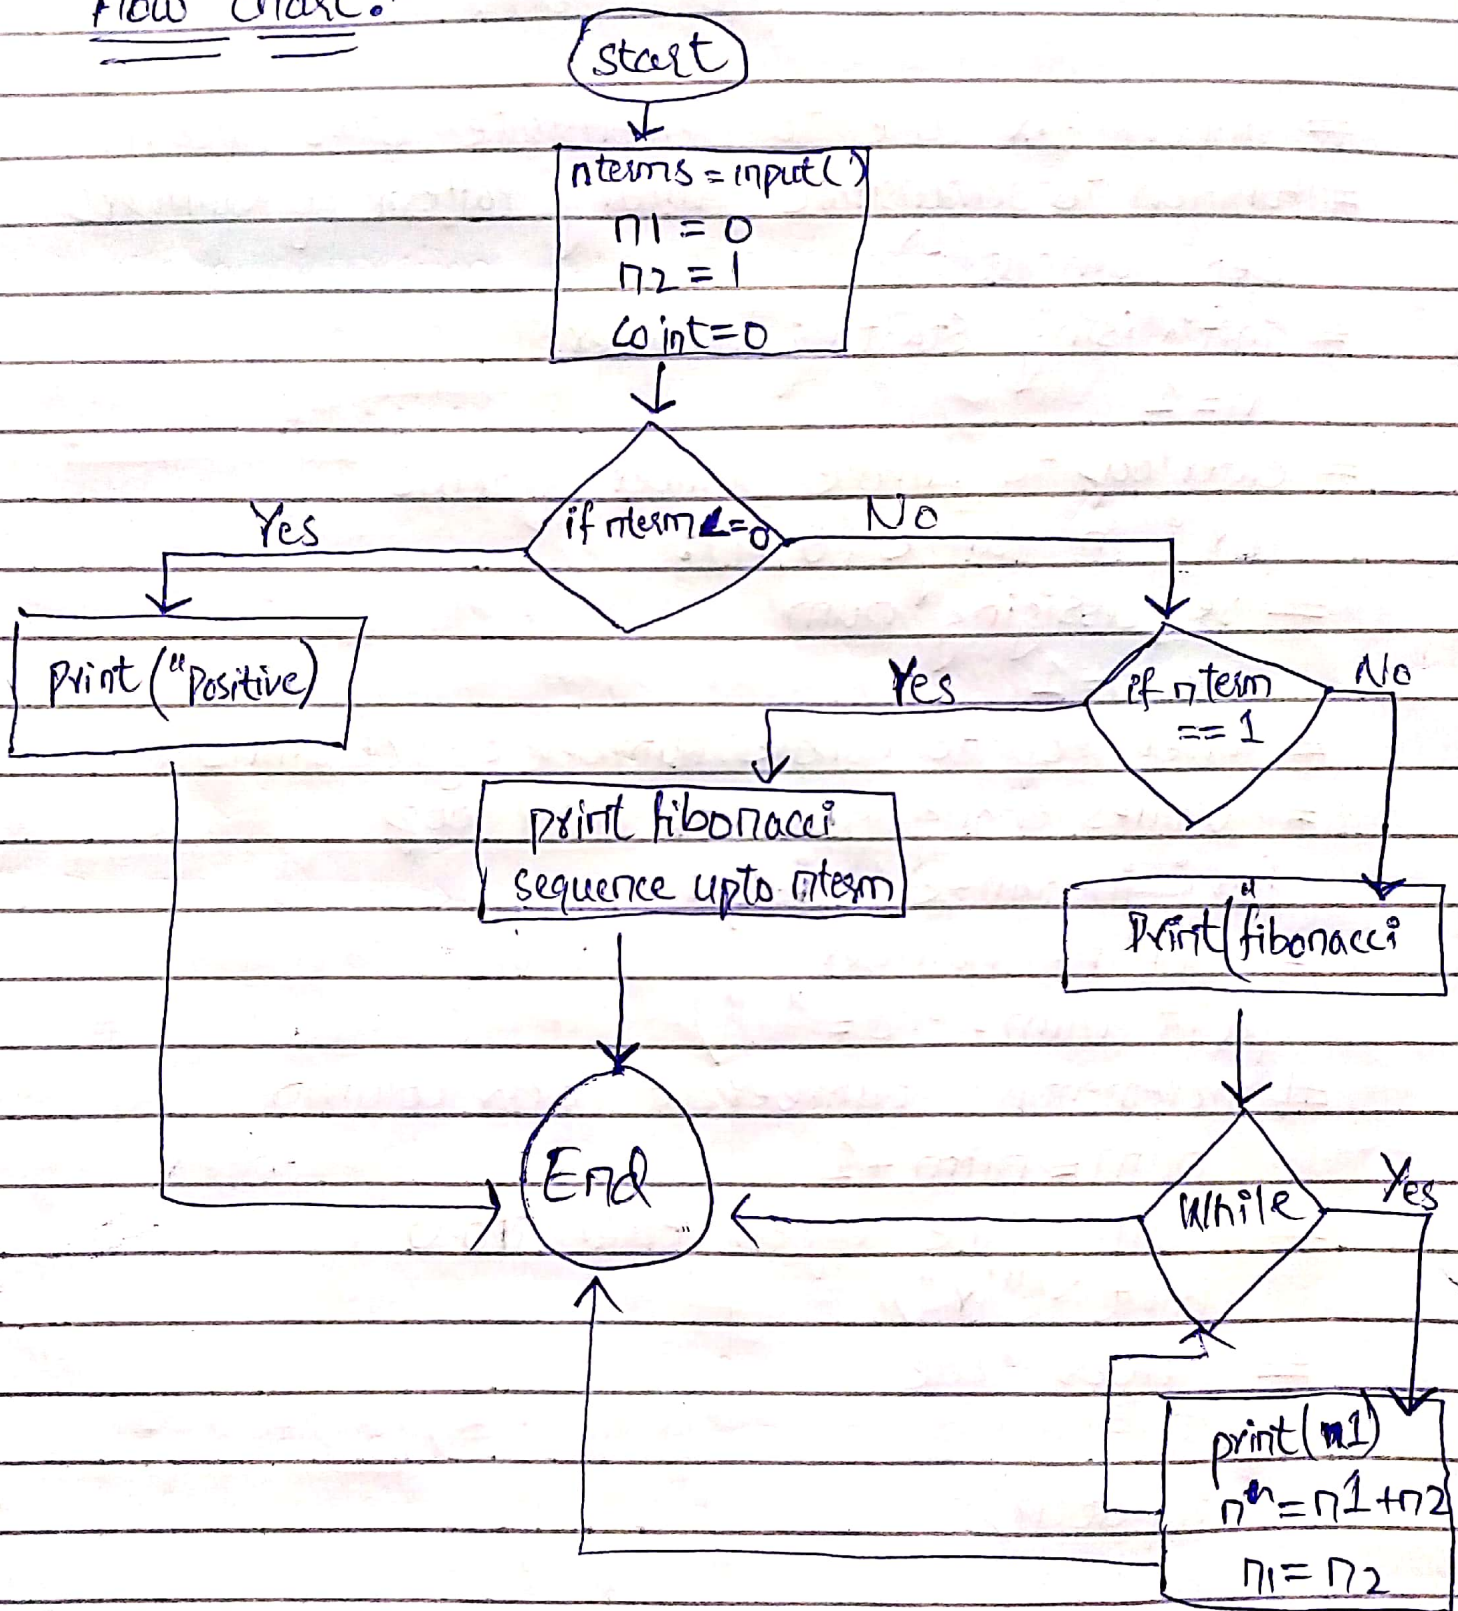 Flow chart:
start
nterms = input( )
n1 = 0
n2 = 1
coint=0
if nterm <=0
Yes
No
print ("Positive)
if nterm
== 1
Yes
No
print fibonacci
sequence upto nterm
Print("fibonacci
End
While
Yes
print(n1)
nth = n1+n2
n1= n2